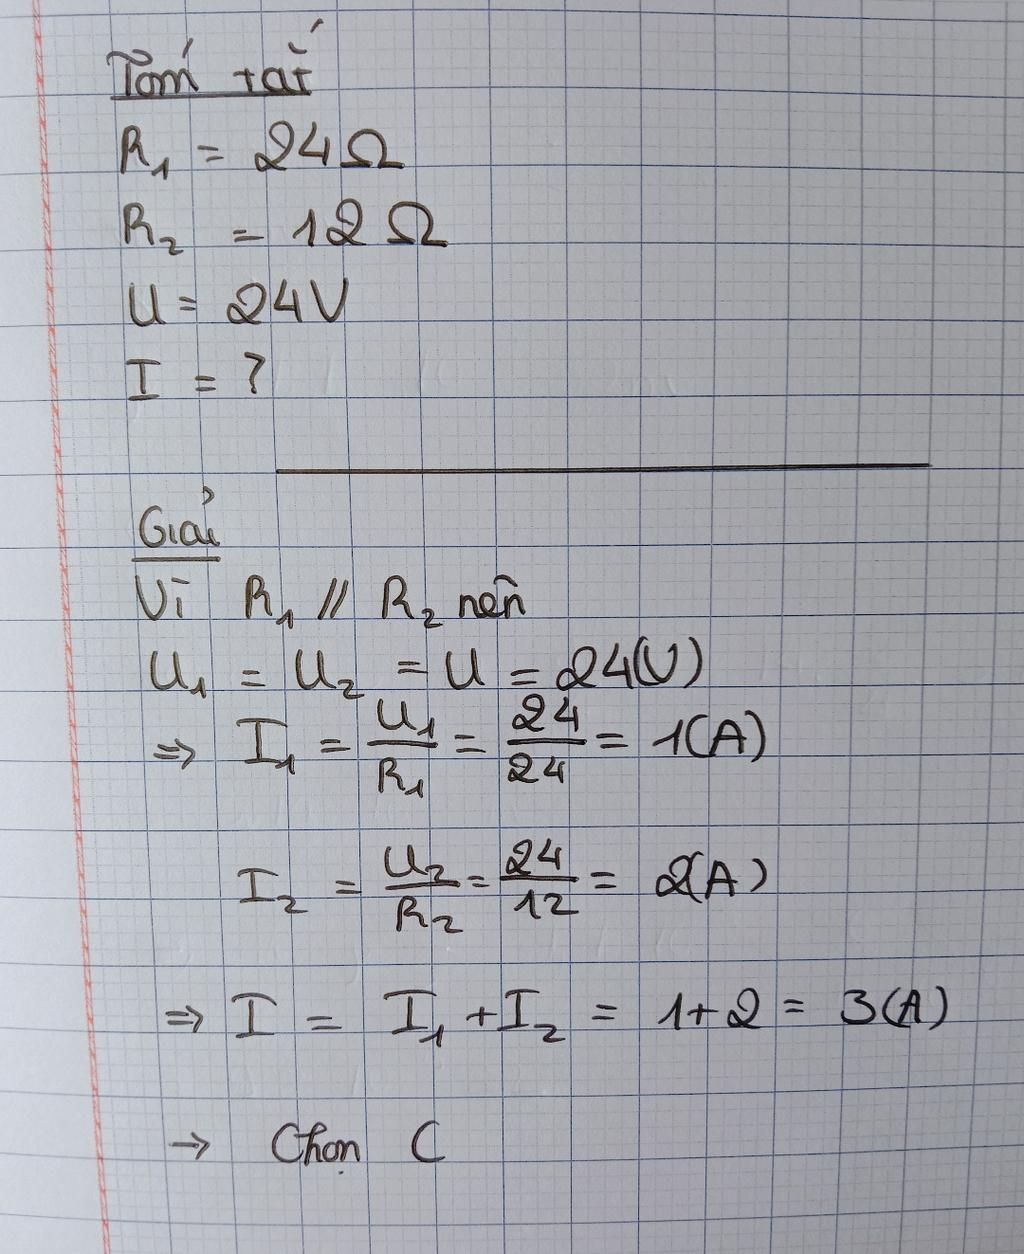 Tóm tắt
R₁ = 24Ω
R₂ = 12Ω
U = 24V
I = ?
Giải
Vì R₁ // R₂ nên
U₁ = U₂ = U = 24(V)
⇒ I₁ = U₁/R₁ = 24/24 = 1(A)
I₂ = U₂/R₂ = 24/12 = 2(A)
⇒ I = I₁ + I₂ = 1+2 = 3(A)
→ Chọn C